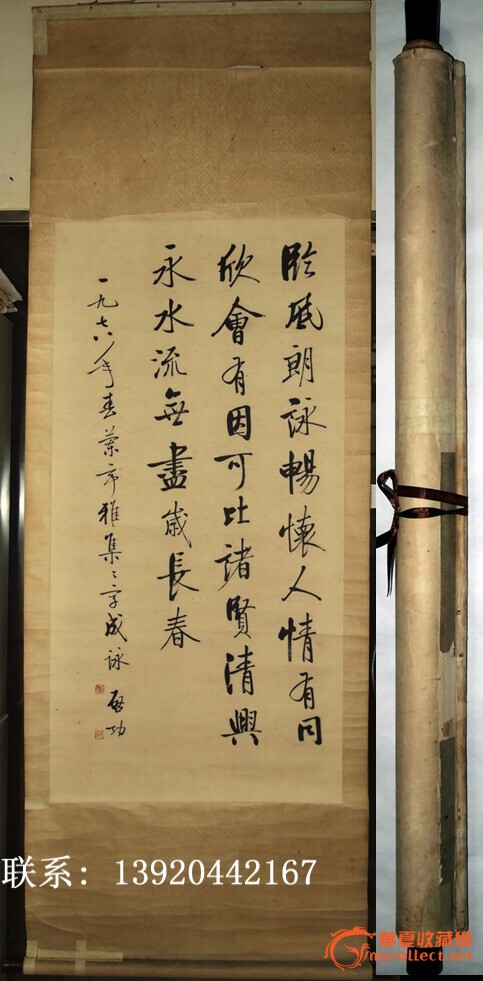 臨風朗詠暢懷人情有同
欣會有因可比諸賢清興
永水流無盡歲長春
一九七八年春蘭亭雅集々字成詠 啟功
联系：13920442167
華夏收藏網
mycollect.net